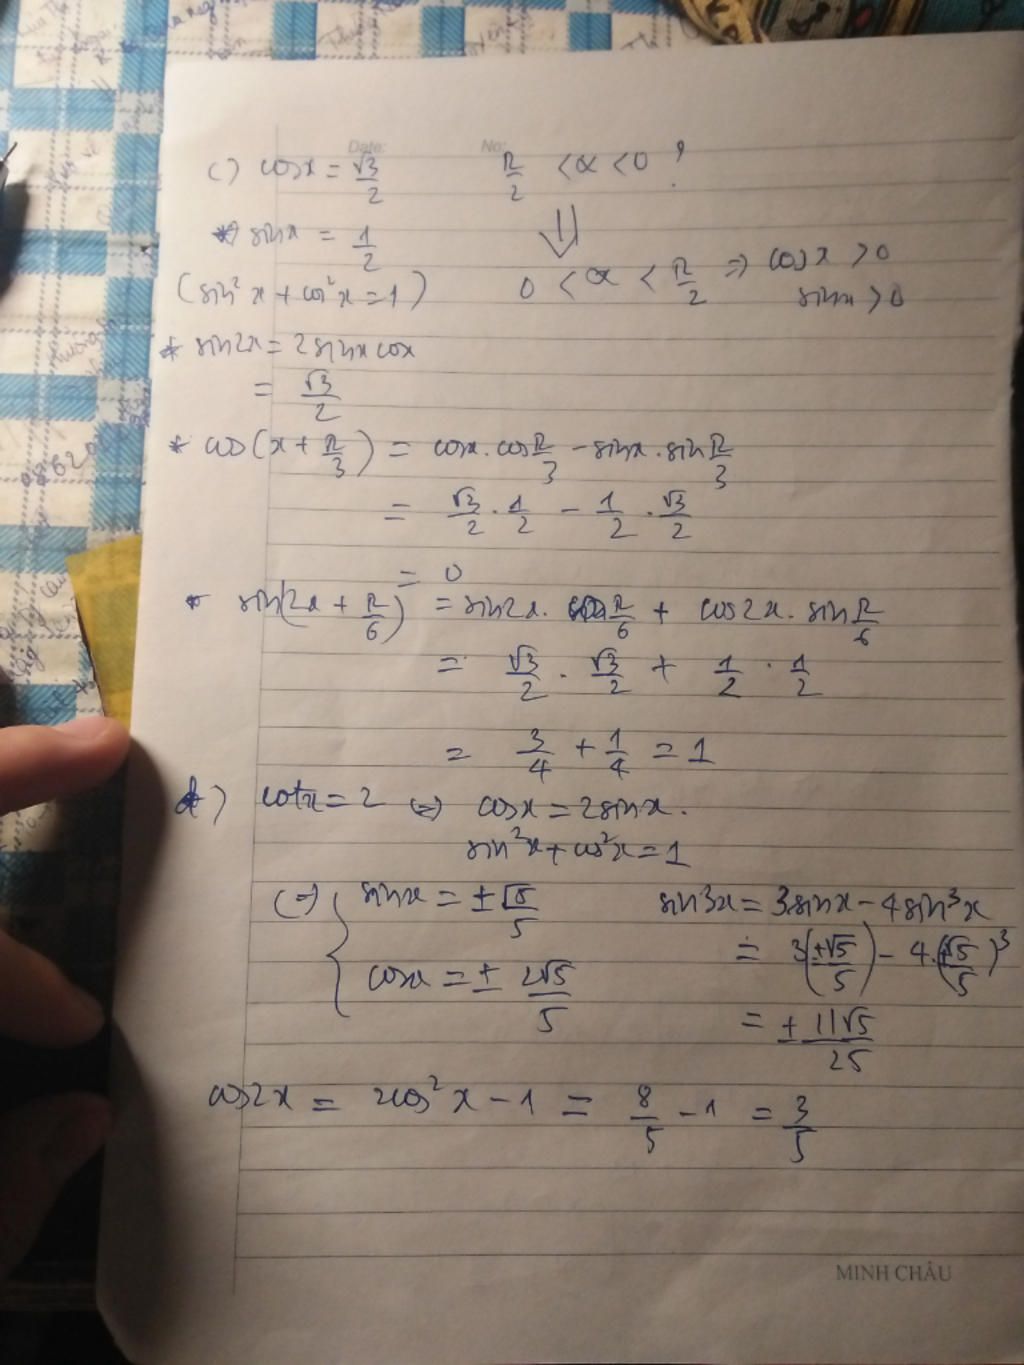 Date: No:
c) cosx = √3/2 π/2 < α < 0 ?
⇓
* sinx = 1/2
(sin²x + cos²x = 1) 0 < α < π/2 ⇒ cosx > 0
sinx > 0
* sin2x = 2sinx cosx
= √3/2
* cos(x + π/3) = cosx.cosπ/3 - sinx.sinπ/3
= √3/2 . 1/2 - 1/2 . √3/2
= 0
* sin(2x + π/6) = sin2x. cosπ/6 + cos2x. sinπ/6
= √3/2 . √3/2 + 1/2 . 1/2
= 3/4 + 1/4 = 1
d) cotx = 2 ⇔ cosx = 2sinx.
sin²x + cos²x = 1
⇔ { sinx = ±√5/5
cosx = ± 2√5/5
sin3x = 3sinx - 4sin³x
= 3(±√5/5) - 4.(±√5/5)³
= ± 11√5/25
cos2x = 2cos²x - 1 = 8/5 - 1 = 3/5
MINH CHÂU